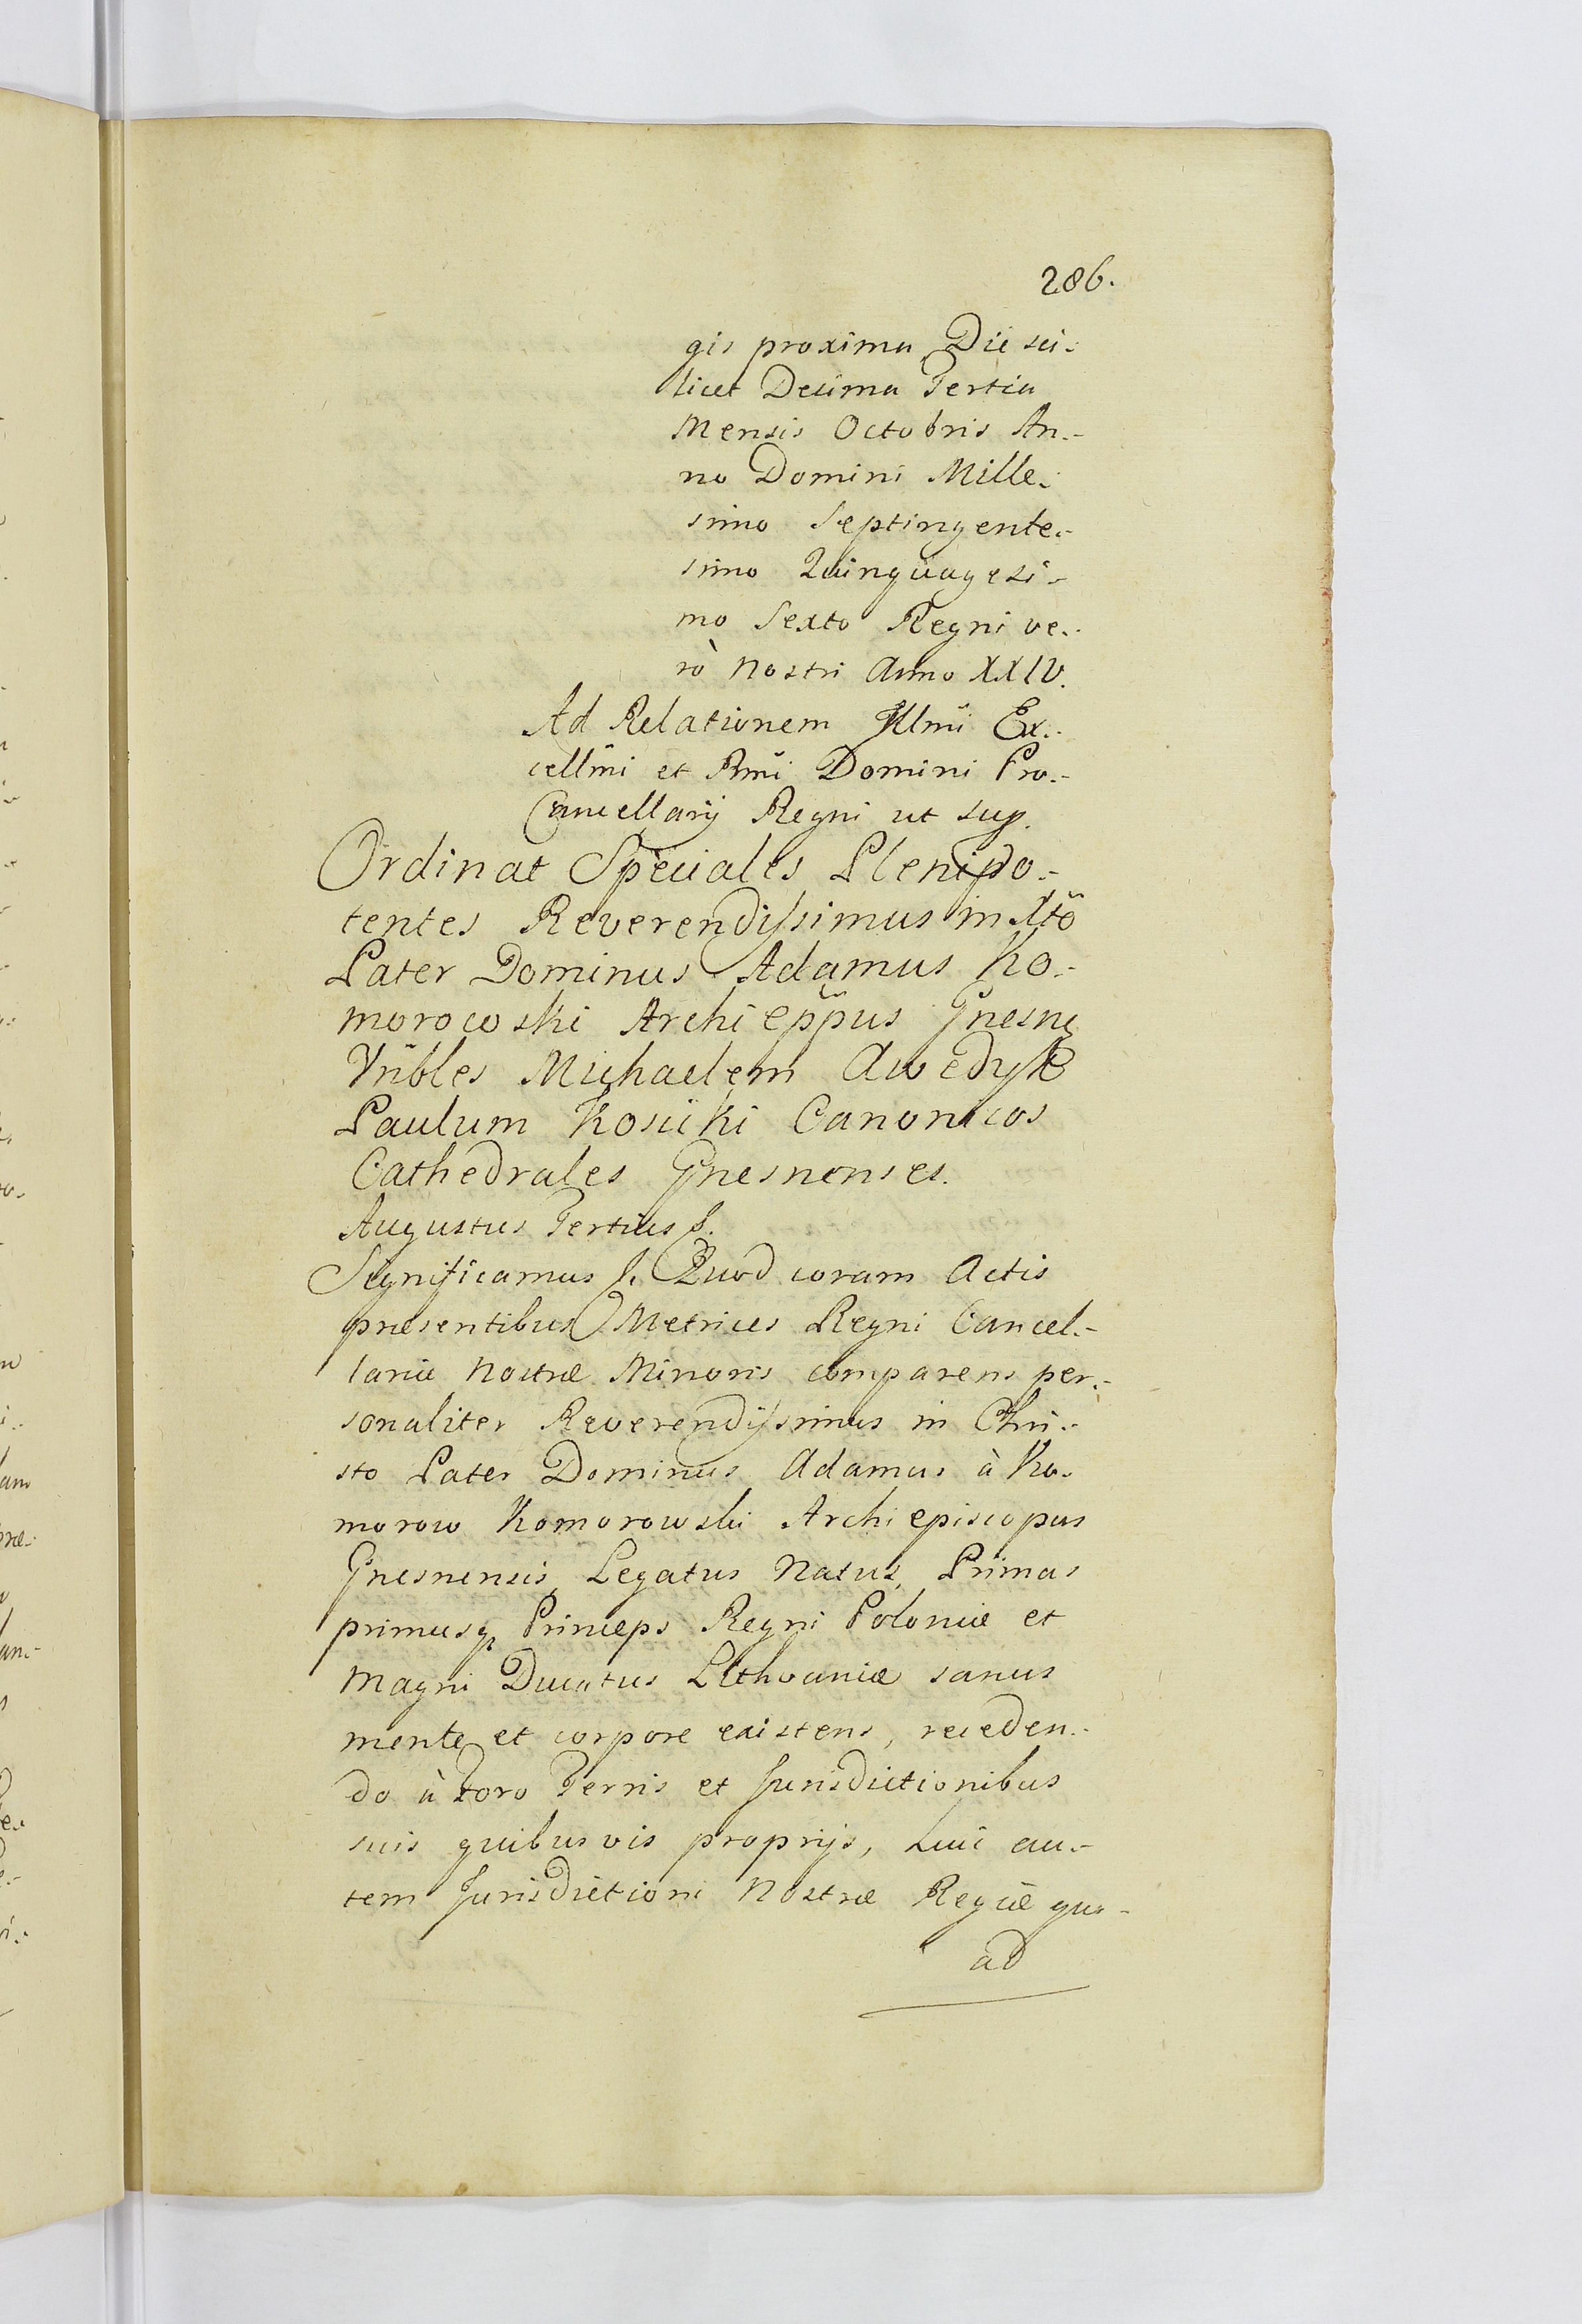 286.
gis proxima Die sci-
licet Decima Tertia
Mensis Octobris An-
no Domini Mille-
simo Septingente-
simo Quinquagesi-
mo Sexto Regni ve-
rò Nostri Anno XXIV.
Ad Relationem Illmi Ex-
cellmi et Rmi Domini Pro-
Cancellarij Regni ut sup.
Ordinat Speciales Plenipo-
tentes Reverendissimus in Xto
Pater Dominus Adamus Ko-
morowski Archieppus Gnesn
Vnbles Michaelem Awedyk
Paulum Kosicki Canonicos
Cathedrales Gnesnenses.
Augustus Tertius &.
Significamus &. Quod coram Actis
præsentibus Metrices Regni Cancel-
lariæ Nostræ Minoris comparens per-
sonaliter Reverendissimus in Chri-
sto Pater Dominus Adamus à Ko-
morow Komorowski Archiepiscopus
Gnesnensis, Legatus Natus, Primas
primusq Princeps Regni Poloniæ et
Magni Ducatus Lithvaniæ sanus
mente et corpore existens, receden-
do à Foro Terris et Jurisdictionibus
suis quibusvis proprijs, huic au-
tem Jurisdictioni Nostræ Regiæ quo-
ad